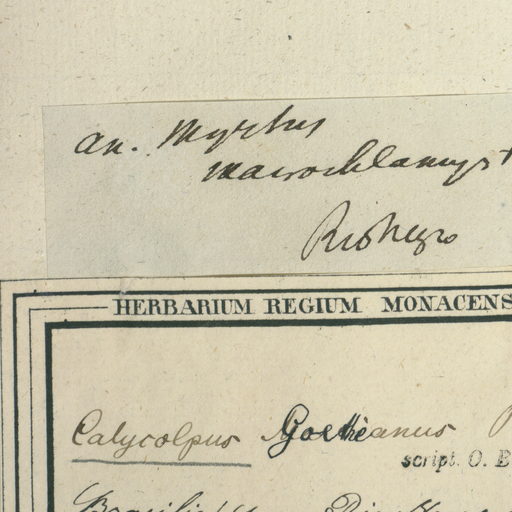 an. Myrtus
macrochlamys
Rio Negro
HERBARIUM REGIUM MONACENS
Calycolpus Goetheanus
script. O. B